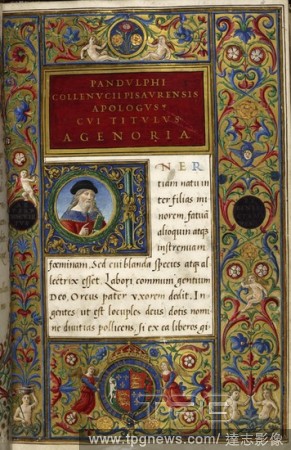 PANDVLPHI
COLLENVCII PISAVRENSIS
APOLOGVS
CVI TITVLVS
AGENORIA
INER
tiam natu in
ter filias mi
norem, fatuā
alioquin atqꝫ
instrenuam
fœminam. Sed cui blanda species atqꝫ al
lectrix esset. Labori communi gentium
Deo, Orcus pater uxorem dedit. In
gentes ut est locuples deus dotis nomi
ne diuitias pollicens, si ex ea liberos gi
www.tpgnews.com / 達志影像